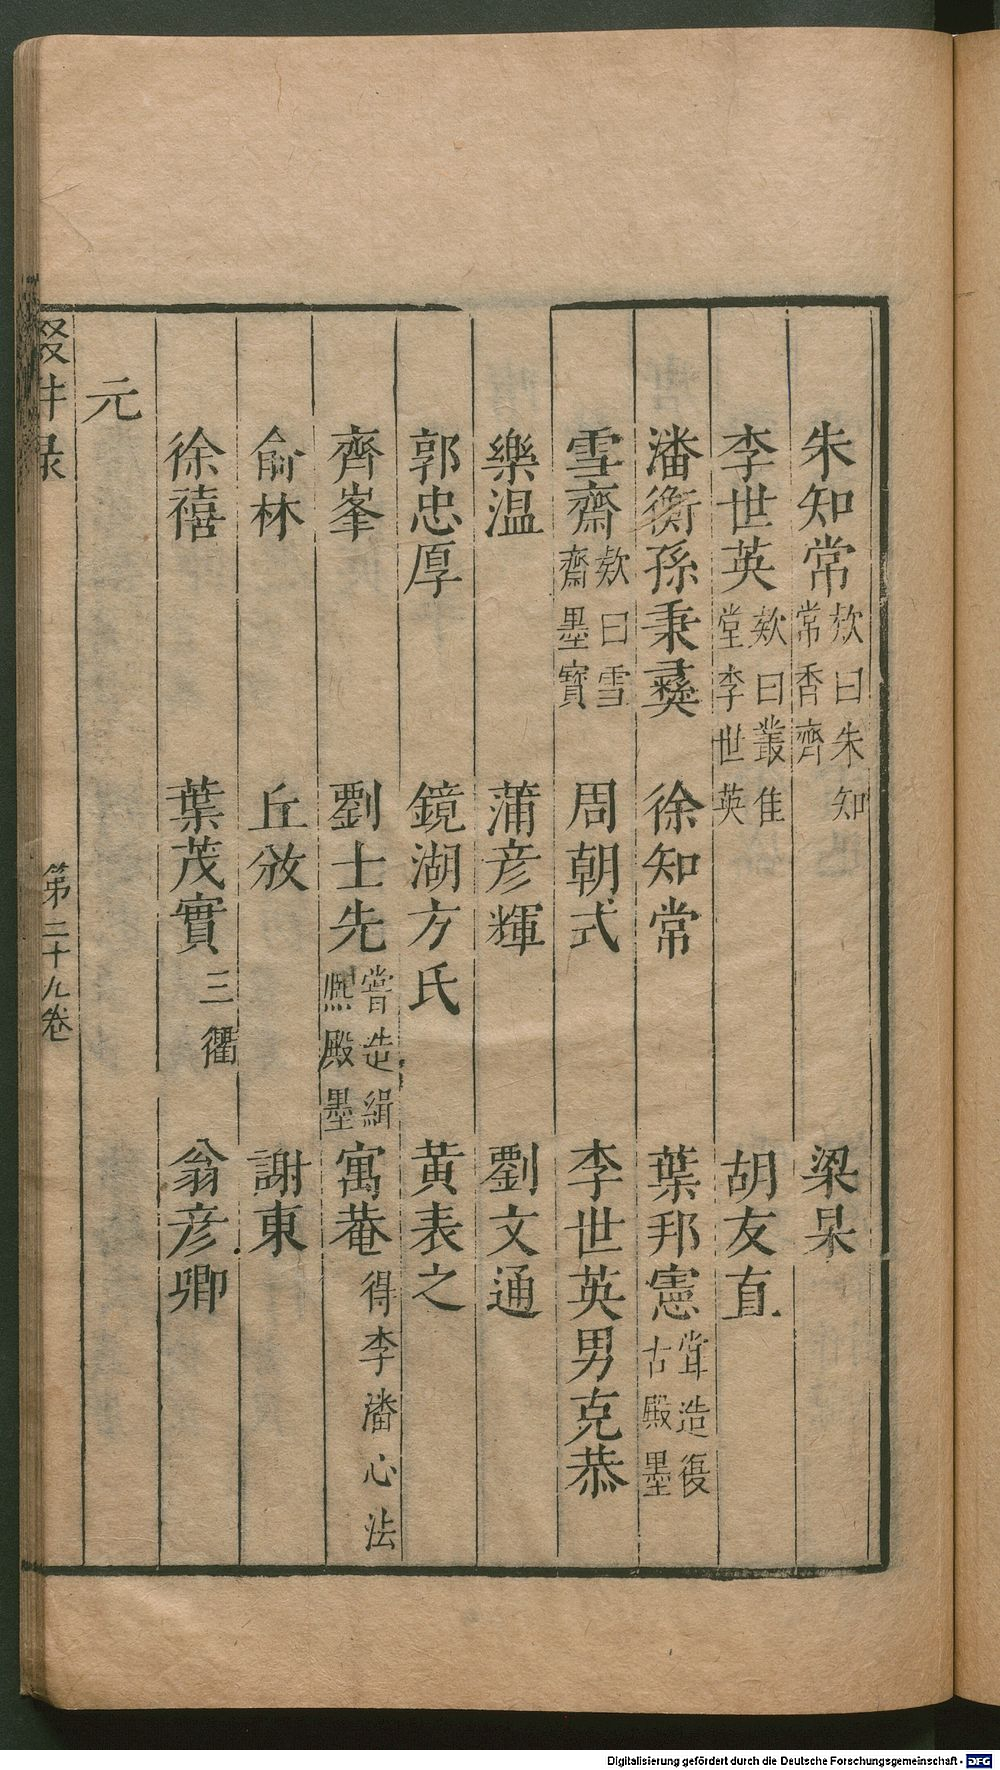 朱知常欸曰朱知常香齊　梁杲
李世英欸曰叢隹堂李世英　胡友直
潘衡孫秉彝　徐知常　葉邦憲甞造復古殿墨
雪齋欸曰雪齋墨寳　周朝式　李世英男克恭
樂温　蒲彦輝　劉文通
郭忠厚　鏡湖方氏　黄表之
齊峯　劉士先嘗造緝熈殿墨　寓菴得李潘心法
俞林　丘攽　謝東
徐禧　葉茂實三衢　翁彦卿
元
輟耕录　第二十九卷
Digitalisierung gefördert durch die Deutsche Forschungsgemeinschaft - DFG